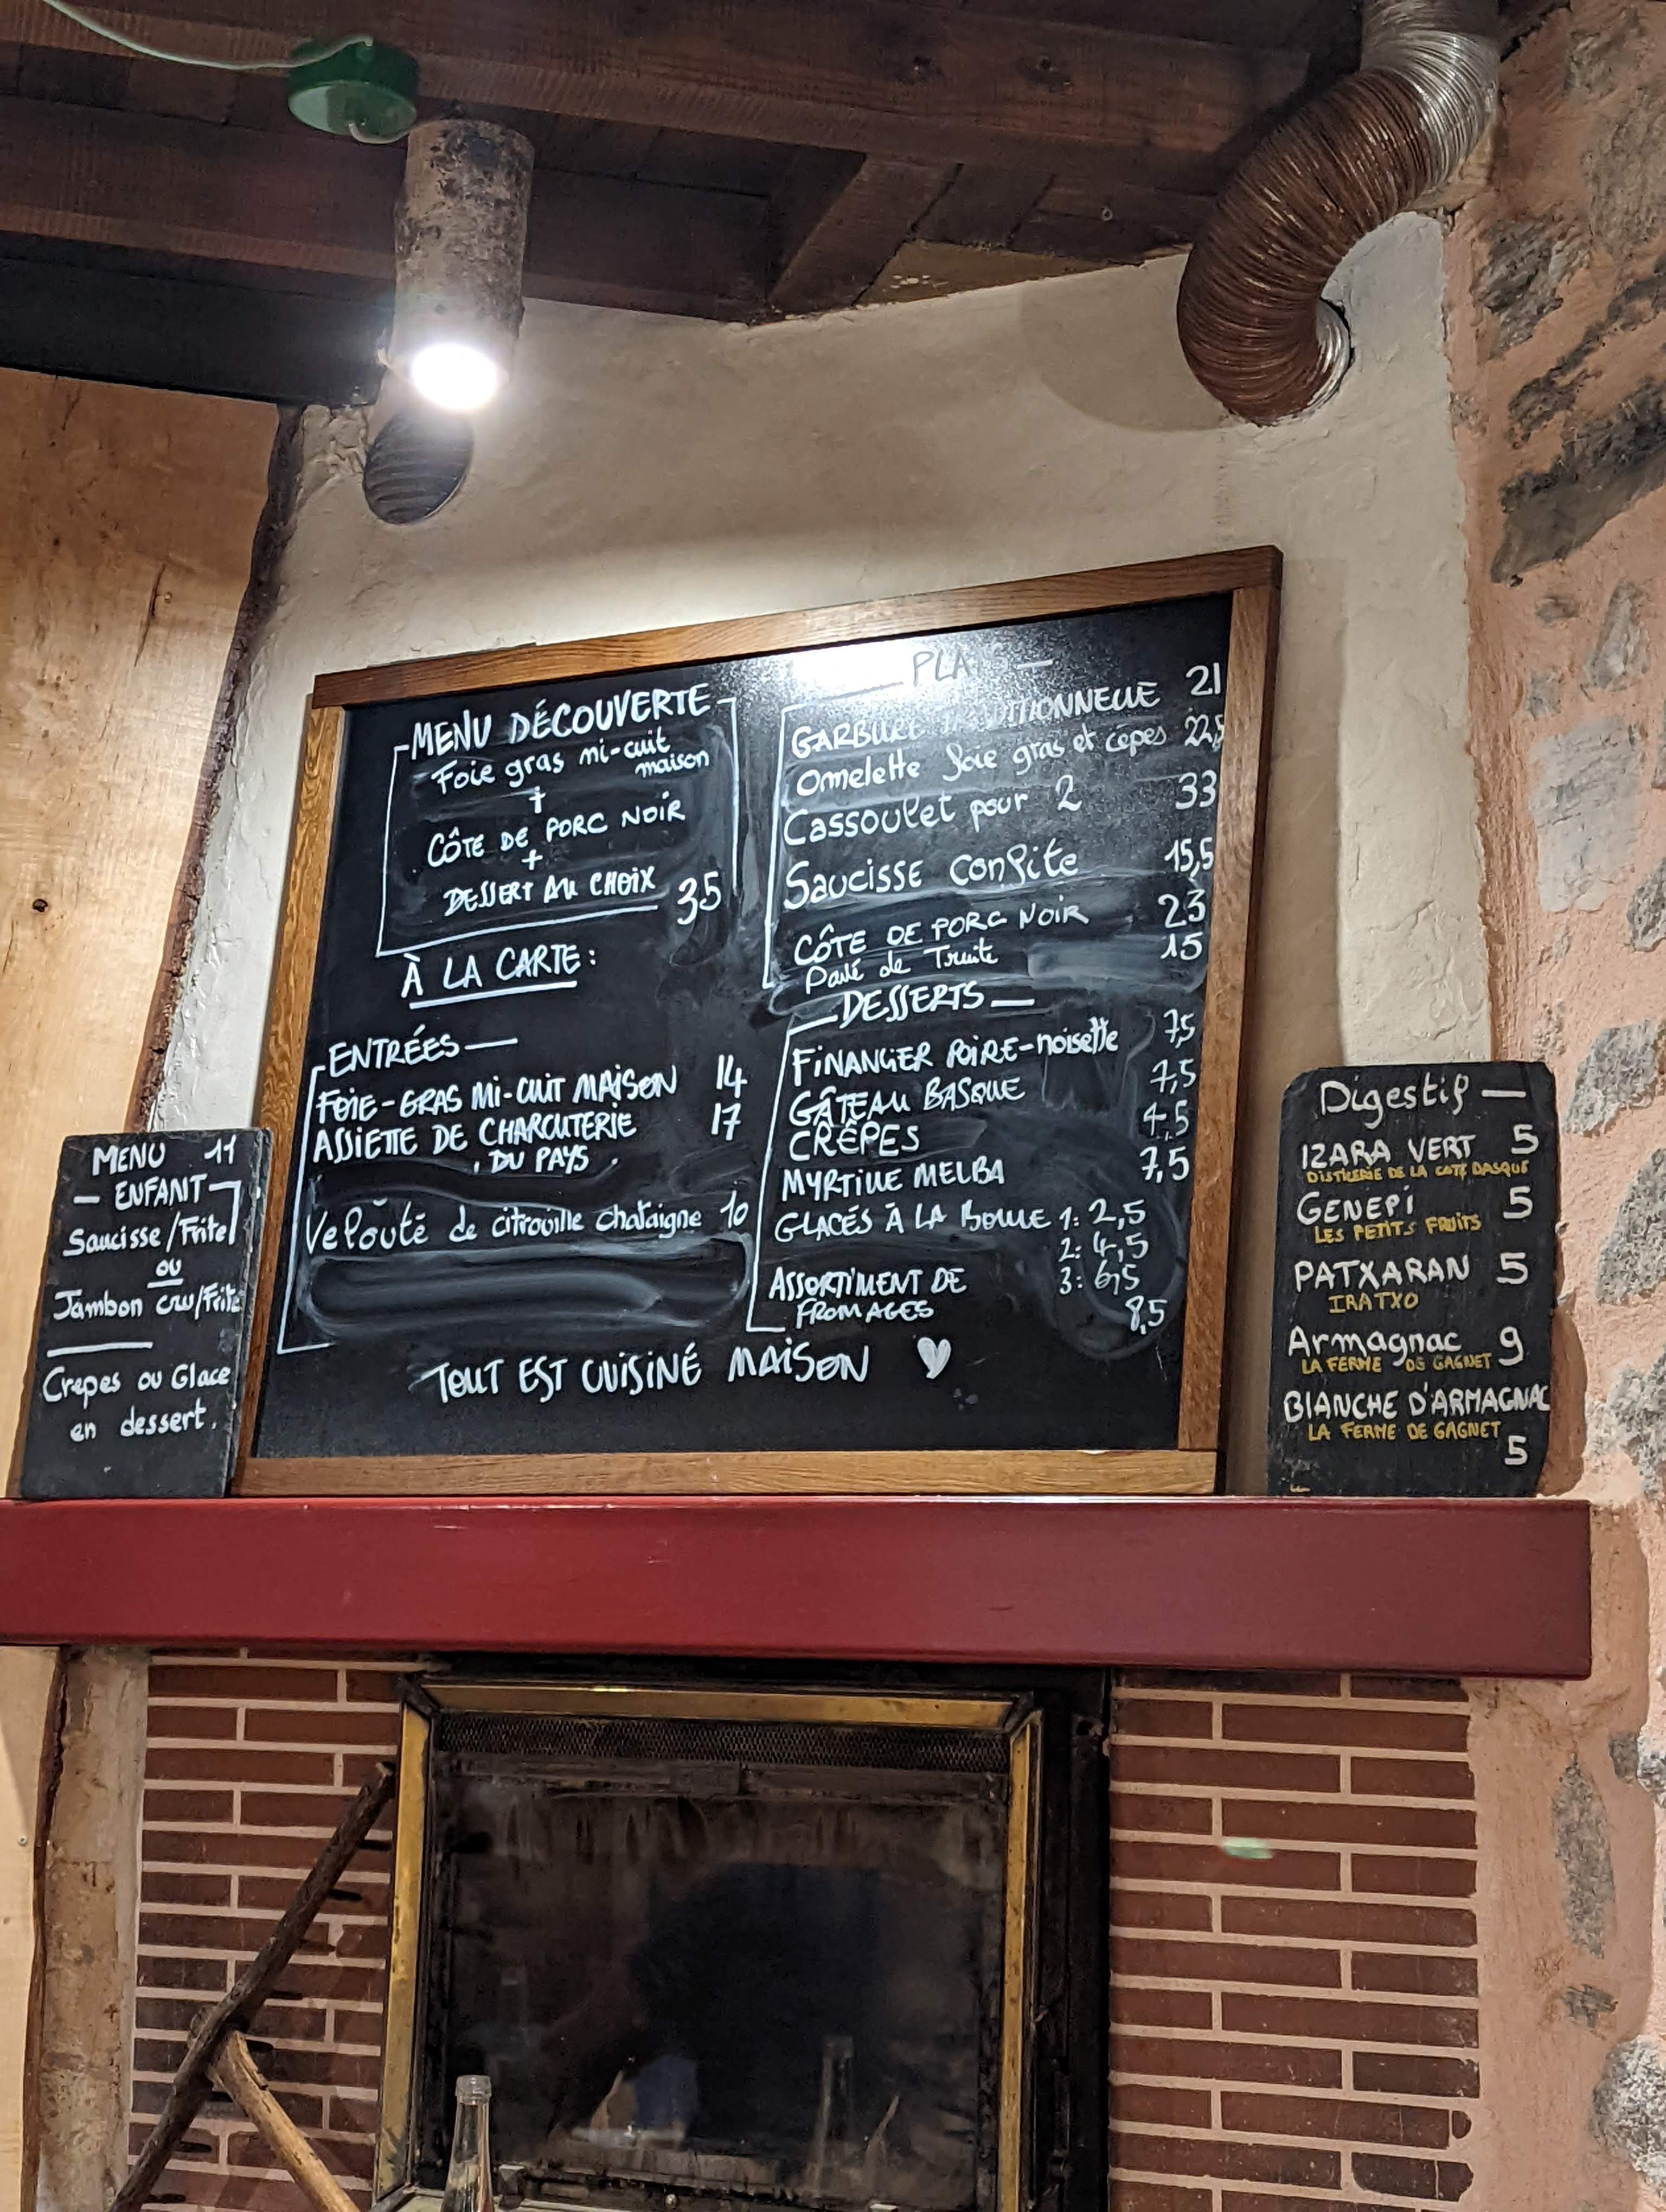 MENU 11
— ENFANT —
Saucisse/Frite
ou
Jambon cru/Frite
Crepes ou Glace
en dessert.
MENU DÉCOUVERTE
Foie gras mi-cuit
maison
+
CÔTE DE PORC NOIR
+
DESSERT AU CHOIX 35
À LA CARTE:
ENTRÉES —
FOIE-GRAS MI-CUIT MAISON 14
ASSIETTE DE CHARCUTERIE 17
. DU PAYS .
Velouté de citrouille chataigne 10
PLATS —
GARBURE TRADITIONNELLE 21
Omelette foie gras et cèpes 22,5
Cassoulet pour 2 33
Saucisse confite 15,5
CÔTE DE PORC NOIR 23
Pavé de Truite 15
— DESSERTS —
FINANCIER POIRE-noisette 7,5
GÂTEAU BASQUE 7,5
CRÊPES 4,5
MYRTILLE MELBA 7,5
GLACÉS À LA BOULE 1: 2,5
2: 4,5
3: 6,5
ASSORTIMENT DE
FROMAGES 8,5
TOUT EST CUISINÉ MAISON
Digestif —
IZARA VERT 5
DISTILERIE DE LA COTE BASQUE
GENEPI 5
LES PETITS FRUITS
PATXARAN 5
IRATXO
Armagnac 9
LA FERME DE GAGNET
BLANCHE D'ARMAGNAC
LA FERME DE GAGNET
5